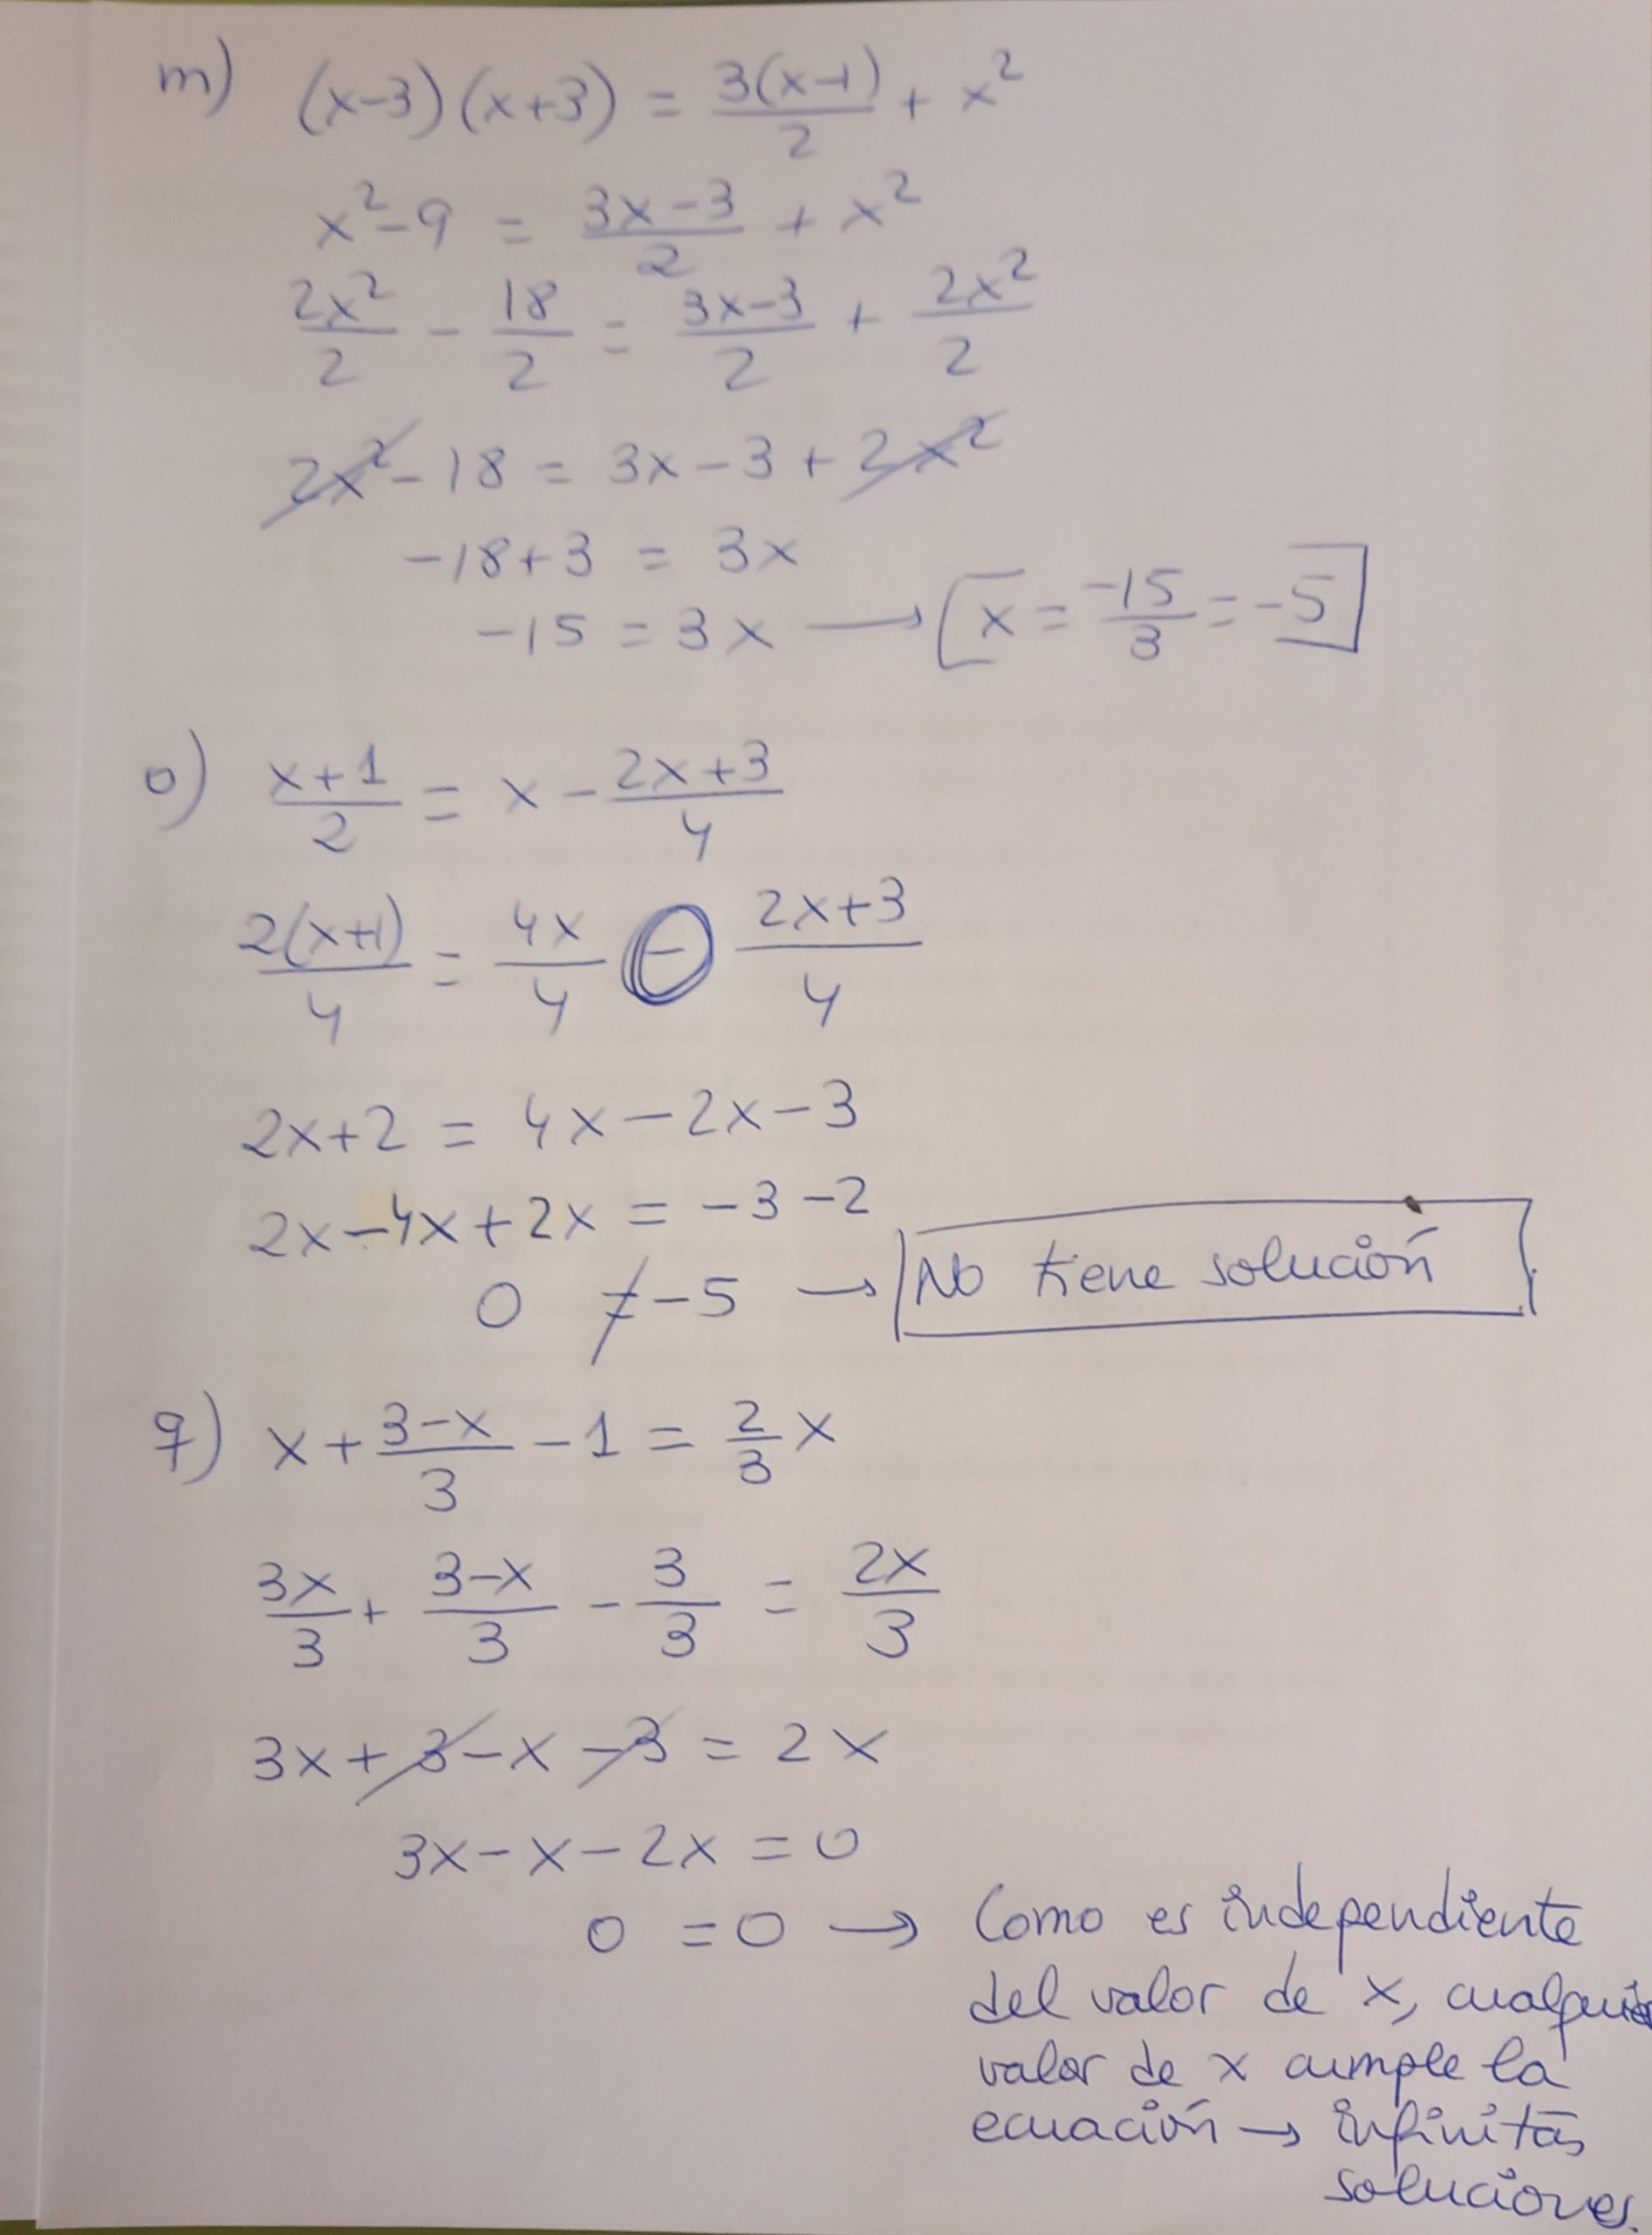 m) (x-3)(x+3) = 3(x-1)/2 + x²
x²-9 = 3x-3/2 + x²
2x²/2 - 18/2 = 3x-3/2 + 2x²/2
2x² - 18 = 3x - 3 + 2x²
-18+3 = 3x
-15 = 3x → x = -15/3 = -5
o) x+1/2 = x - 2x+3/4
2(x+1)/4 = 4x/4 - 2x+3/4
2x+2 = 4x-2x-3
2x-4x+2x = -3-2
0 ≠ -5 → No tiene solución
q) x + 3-x/3 - 1 = 2/3 x
3x/3 + 3-x/3 - 3/3 = 2x/3
3x+3-x-3 = 2x
3x-x-2x = 0
0 = 0 → Como es independiente
del valor de x, cualquier
valor de x cumple la
ecuación → infinitas
soluciones.